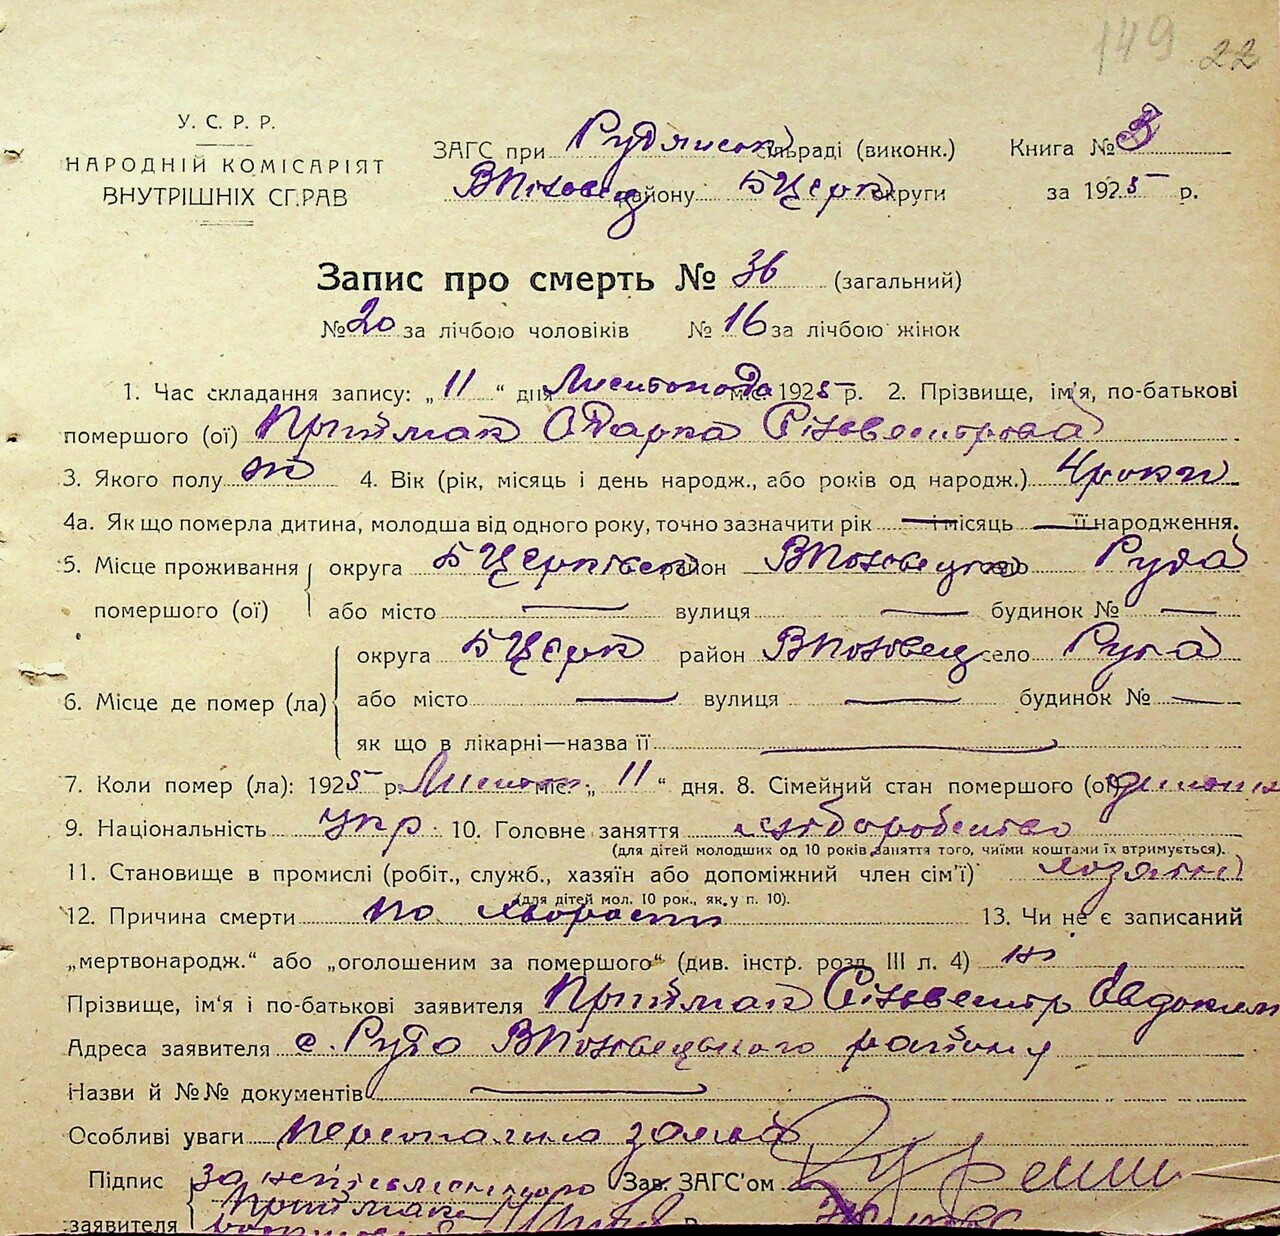 149 22
У. С. Р. Р.
НАРОДНІЙ КОМІСАРІЯТ
ВНУТРІШНІХ СПРАВ
ЗАГС при Рудянськ сільраді (виконк.) Книга №
ВПоловец району БЦерк округи за 1925 р.
Запис про смерть № 36 (загальний)
№ 20 за лічбою чоловіків № 16 за лічбою жінок
1. Час складання запису: „ 11 “ дня Листопада міс. 1925 р. 2. Прізвище, ім'я, по-батькові
помершого (ої) Приймак Одарка Сільвестрова
3. Якого полу ж 4. Вік (рік, місяць і день народж., або років од народж.) 4 роки
4а. Як що померла дитина, молодша від одного року, точно зазначити рік — і місяць — її народження.
5. Місце проживання округа БЦерківськ район ВПоловецьк село Руда
помершого (ої) або місто — вулиця — будинок № —
округа БЦерк район ВПоловец село Руда
6. Місце де помер (ла) або місто — вулиця — будинок № —
як що в лікарні—назва її —
7. Коли помер (ла): 1925 р. Листоп. міс. „ 11 “ дня. 8. Сімейний стан помершого (ої) дитина
9. Національність укр. 10. Головне заняття хліборобство
(для дітей молодших од 10 років заняття того, чиїми коштами їх втримується).
11. Становище в промислі (робіт., служб., хазяїн або допоміжний член сім'ї) хозяїн
(для дітей мол. 10 рок., як у п. 10).
12. Причина смерти по хворасти 13. Чи не є записаний
„мертвонародж.“ або „оголошеним за помершого“ (див. інстр. розд. III л. 4) ні
Прізвище, ім'я і по-батькові заявителя Приймак Сільвестр Овдоким
Адреса заявителя с. Руда ВПоловецького району
Назви й №№ документів —
Особливі уваги
Підпис за неписьменого Зав. ЗАГС'ом
заявителя Приймака